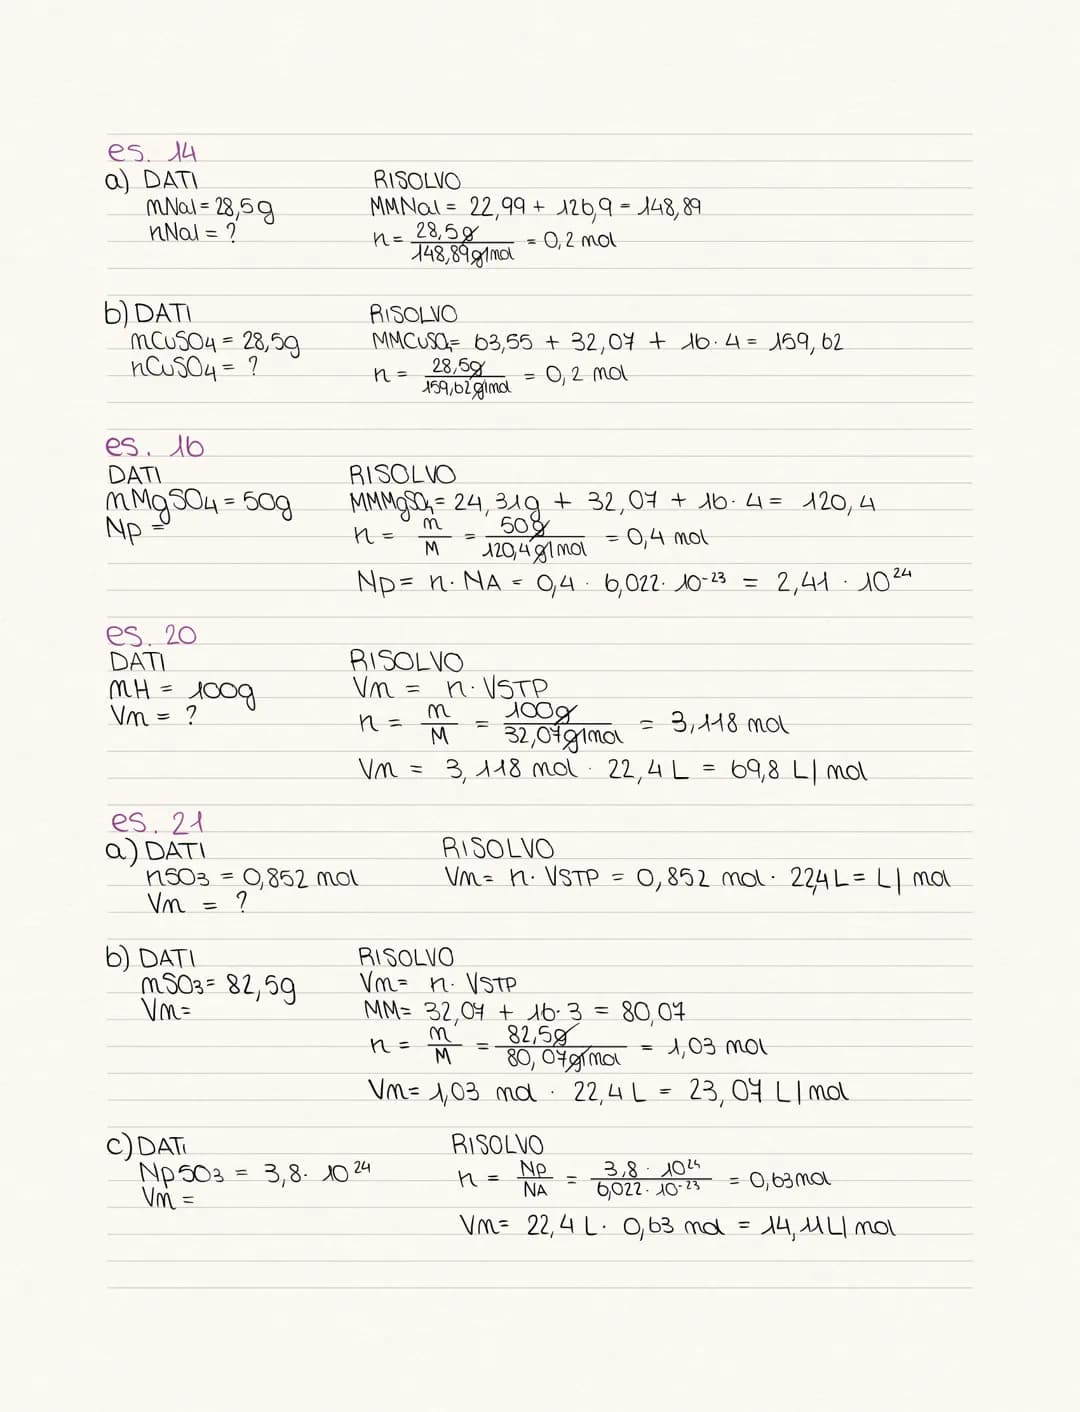 es. 14
a) DATI RISOLVO
mNaI = 28,5g MMNaI = 22,99 + 126,9 = 148,89
nNaI = ? n = 28,5g / 148,89g/mol = 0,2 mol
b) DATI RISOLVO
mCuSO4 = 28,5g MMCuSO4= 63,55 + 32,07 + 16·4 = 159,62
nCuSO4 = ? n = 28,5g / 159,62g/mol = 0,2 mol
es. 16
DATI RISOLVO
mMgSO4 = 50g MMMgSO4= 24,31g + 32,07 + 16·4 = 120,4
Np = n = m/M = 50g / 120,4g/mol = 0,4 mol
Np = n·NA = 0,4 · 6,022·10-23 = 2,41 · 10^24
es. 20
DATI RISOLVO
mH = 100g Vm = n·VSTP
Vm = ? n = m/M = 100g / 32,07g/mol = 3,118 mol
Vm = 3,118 mol · 22,4 L = 69,8 L/mol
es. 21
a) DATI RISOLVO
nSO3 = 0,852 mol Vm= n·VSTP = 0,852 mol · 22,4L = L/mol
Vm = ?
b) DATI RISOLVO
mSO3= 82,5g Vm= n·VSTP
Vm= MM= 32,07 + 16·3 = 80,07
n = m/M = 82,5g / 80,07g/mol = 1,03 mol
Vm= 1,03 mol · 22,4 L = 23,07 L/mol
c) DATI RISOLVO
NpSO3 = 3,8·10^24 n = Np/NA = 3,8·10^24 / 6,022·10-23 = 0,63mol
Vm =
Vm= 22,4 L · 0,63 mol = 14,11L/mol